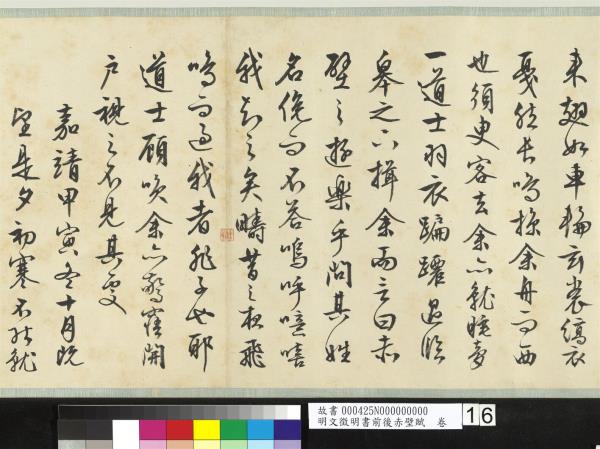 来翅如車輪玄裳縞衣
戛然長鳴掠余舟而西
也須臾客去余亦就睡夢
一道士羽衣蹁躚過臨
皋之下揖余而言曰赤
壁之遊樂乎問其姓
名俛而不答嗚呼噫嘻
我知之矣疇昔之夜飛
鳴而過我者非子也耶
道士顧笑余亦驚寤開
戶視之不見其處
嘉靖甲寅冬十月既
望是夕初寒不能就
故書 000425N000000000
明文徵明書前後赤壁賦 卷
16